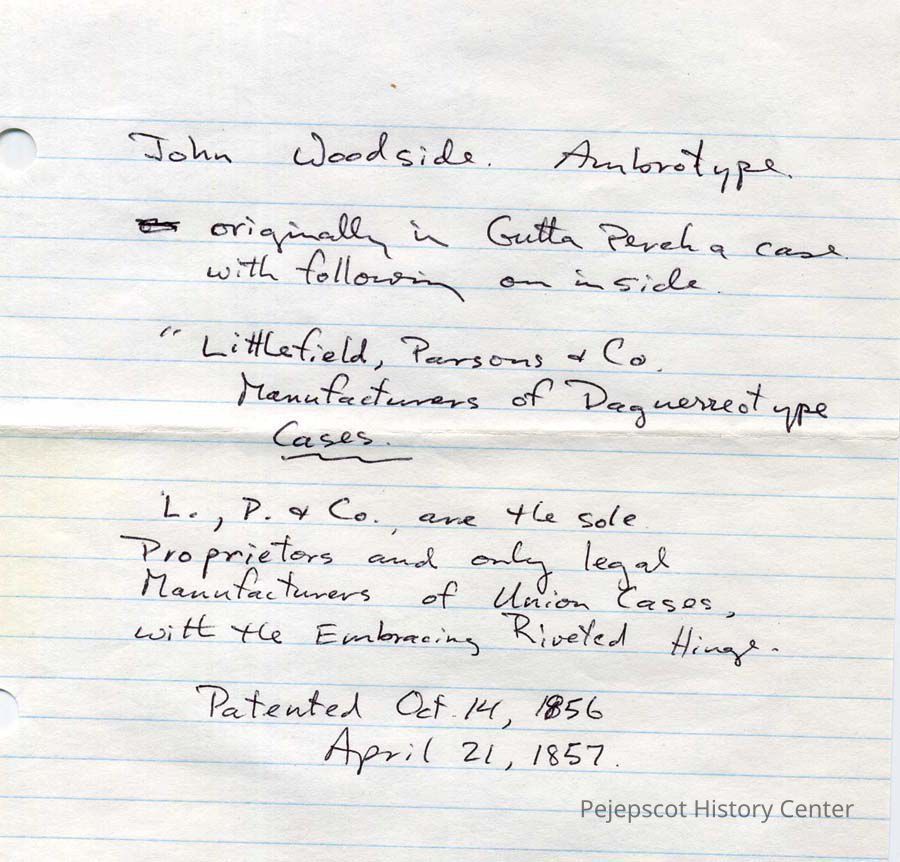 John Woodside. Ambrotype.
originally in Gutta Percha case
with following on inside.
" Littlefield, Parsons & Co.
Manufacturers of Daguerreotype
Cases.
L., P. & Co., are the sole
Proprietors and only legal
Manufacturers of Union Cases,
with the Embracing Riveted Hinge.
Patented Oct. 14, 1856
April 21, 1857.
Pejepscot History Center